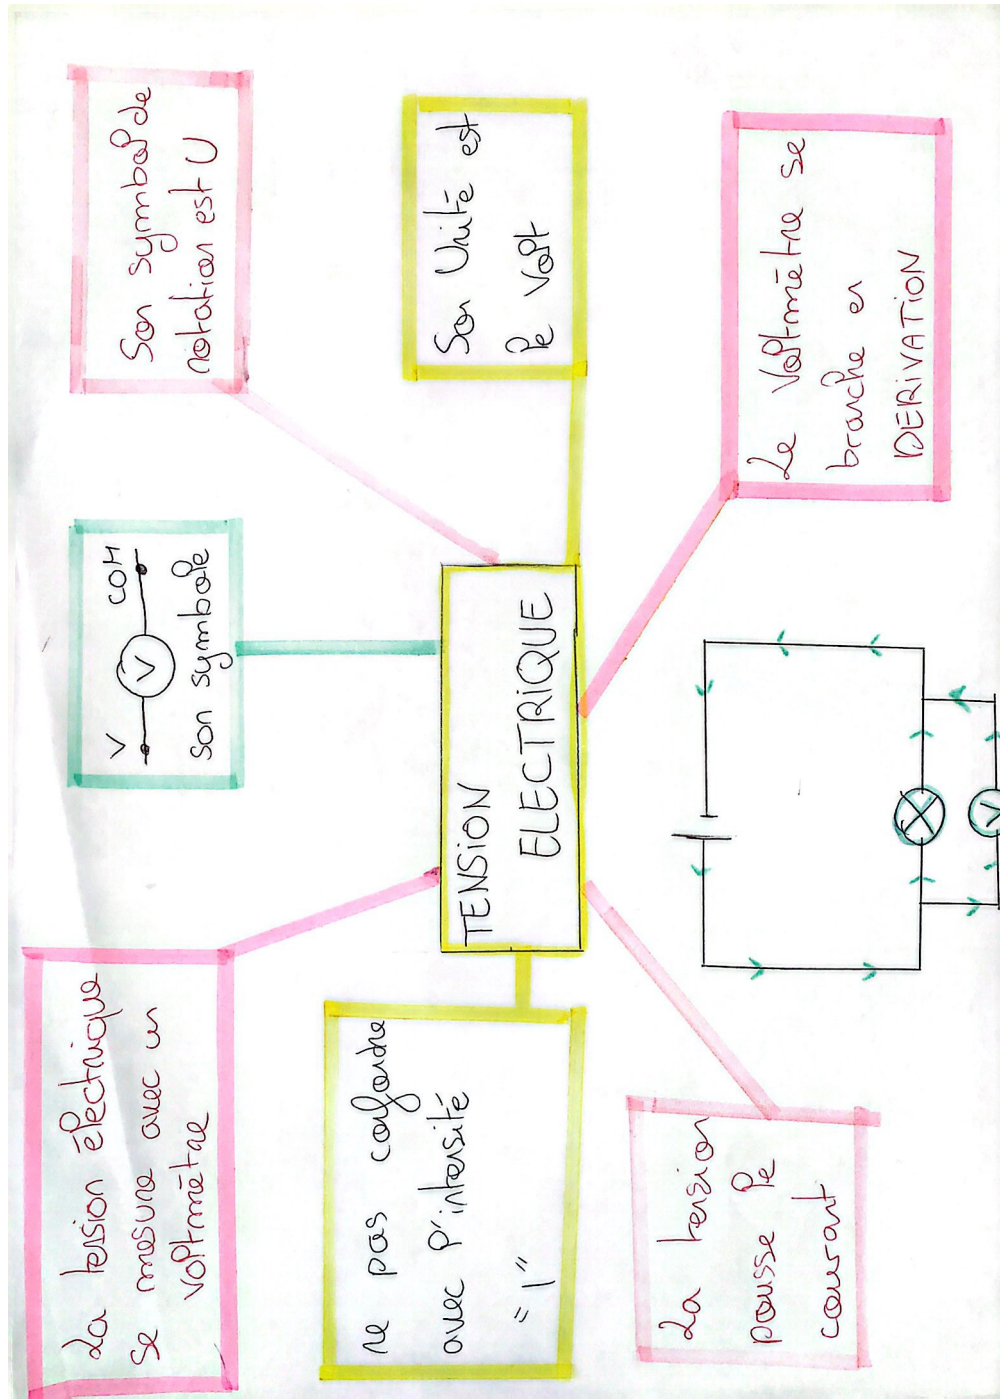 La tension électrique
se mesure avec un
voltmètre
V
COM
V
son symbole
Son symbol de
notation est U
ne pas confondre
avec l'intensité
= I"
TENSION
ELECTRIQUE
Son Unité est
le volt
La tension
pousse le
courant
V
Le Voltmètre se
branche en
DERIVATION